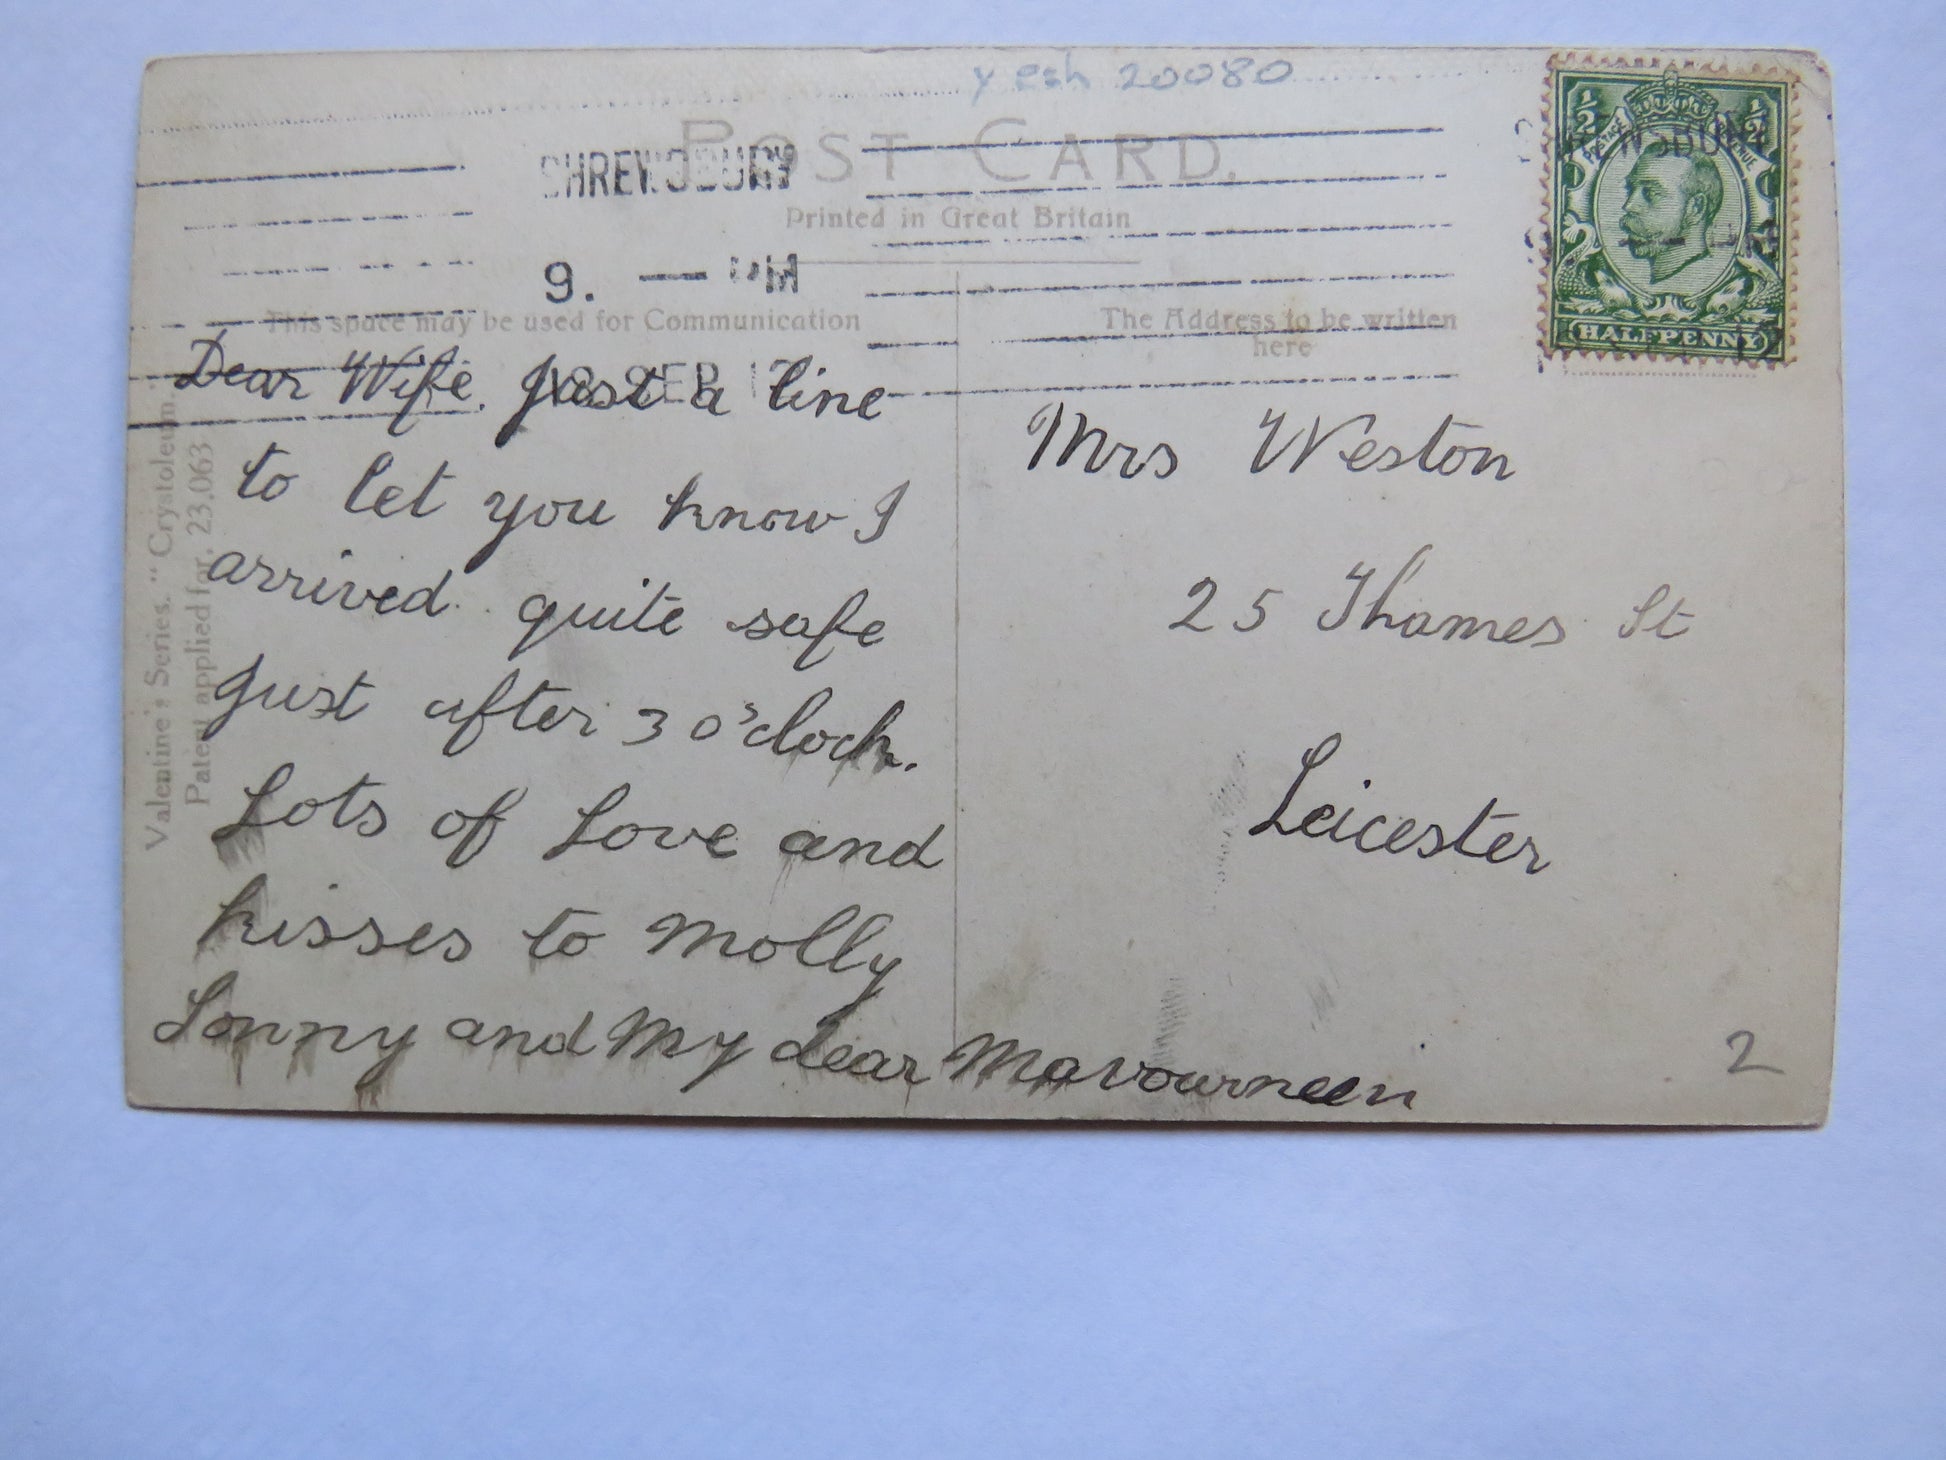 20080
POST CARD.
SHREWSBURY
Printed in Great Britain
9. — PM
This space may be used for Communication
The Address to be written
here
SEP
Valentine's Series. "Crystoleum."
Patent applied for. 23.063
½ ½
POSTAGE REVENUE
HALFPENNY
Dear Wife. Just a line
to let you know I
arrived quite safe
Just after 3 o'clock.
Lots of Love and
kisses to Molly
Sonny and My dear Mavourneen
Mrs Weston
25 Thames St
Leicester
2